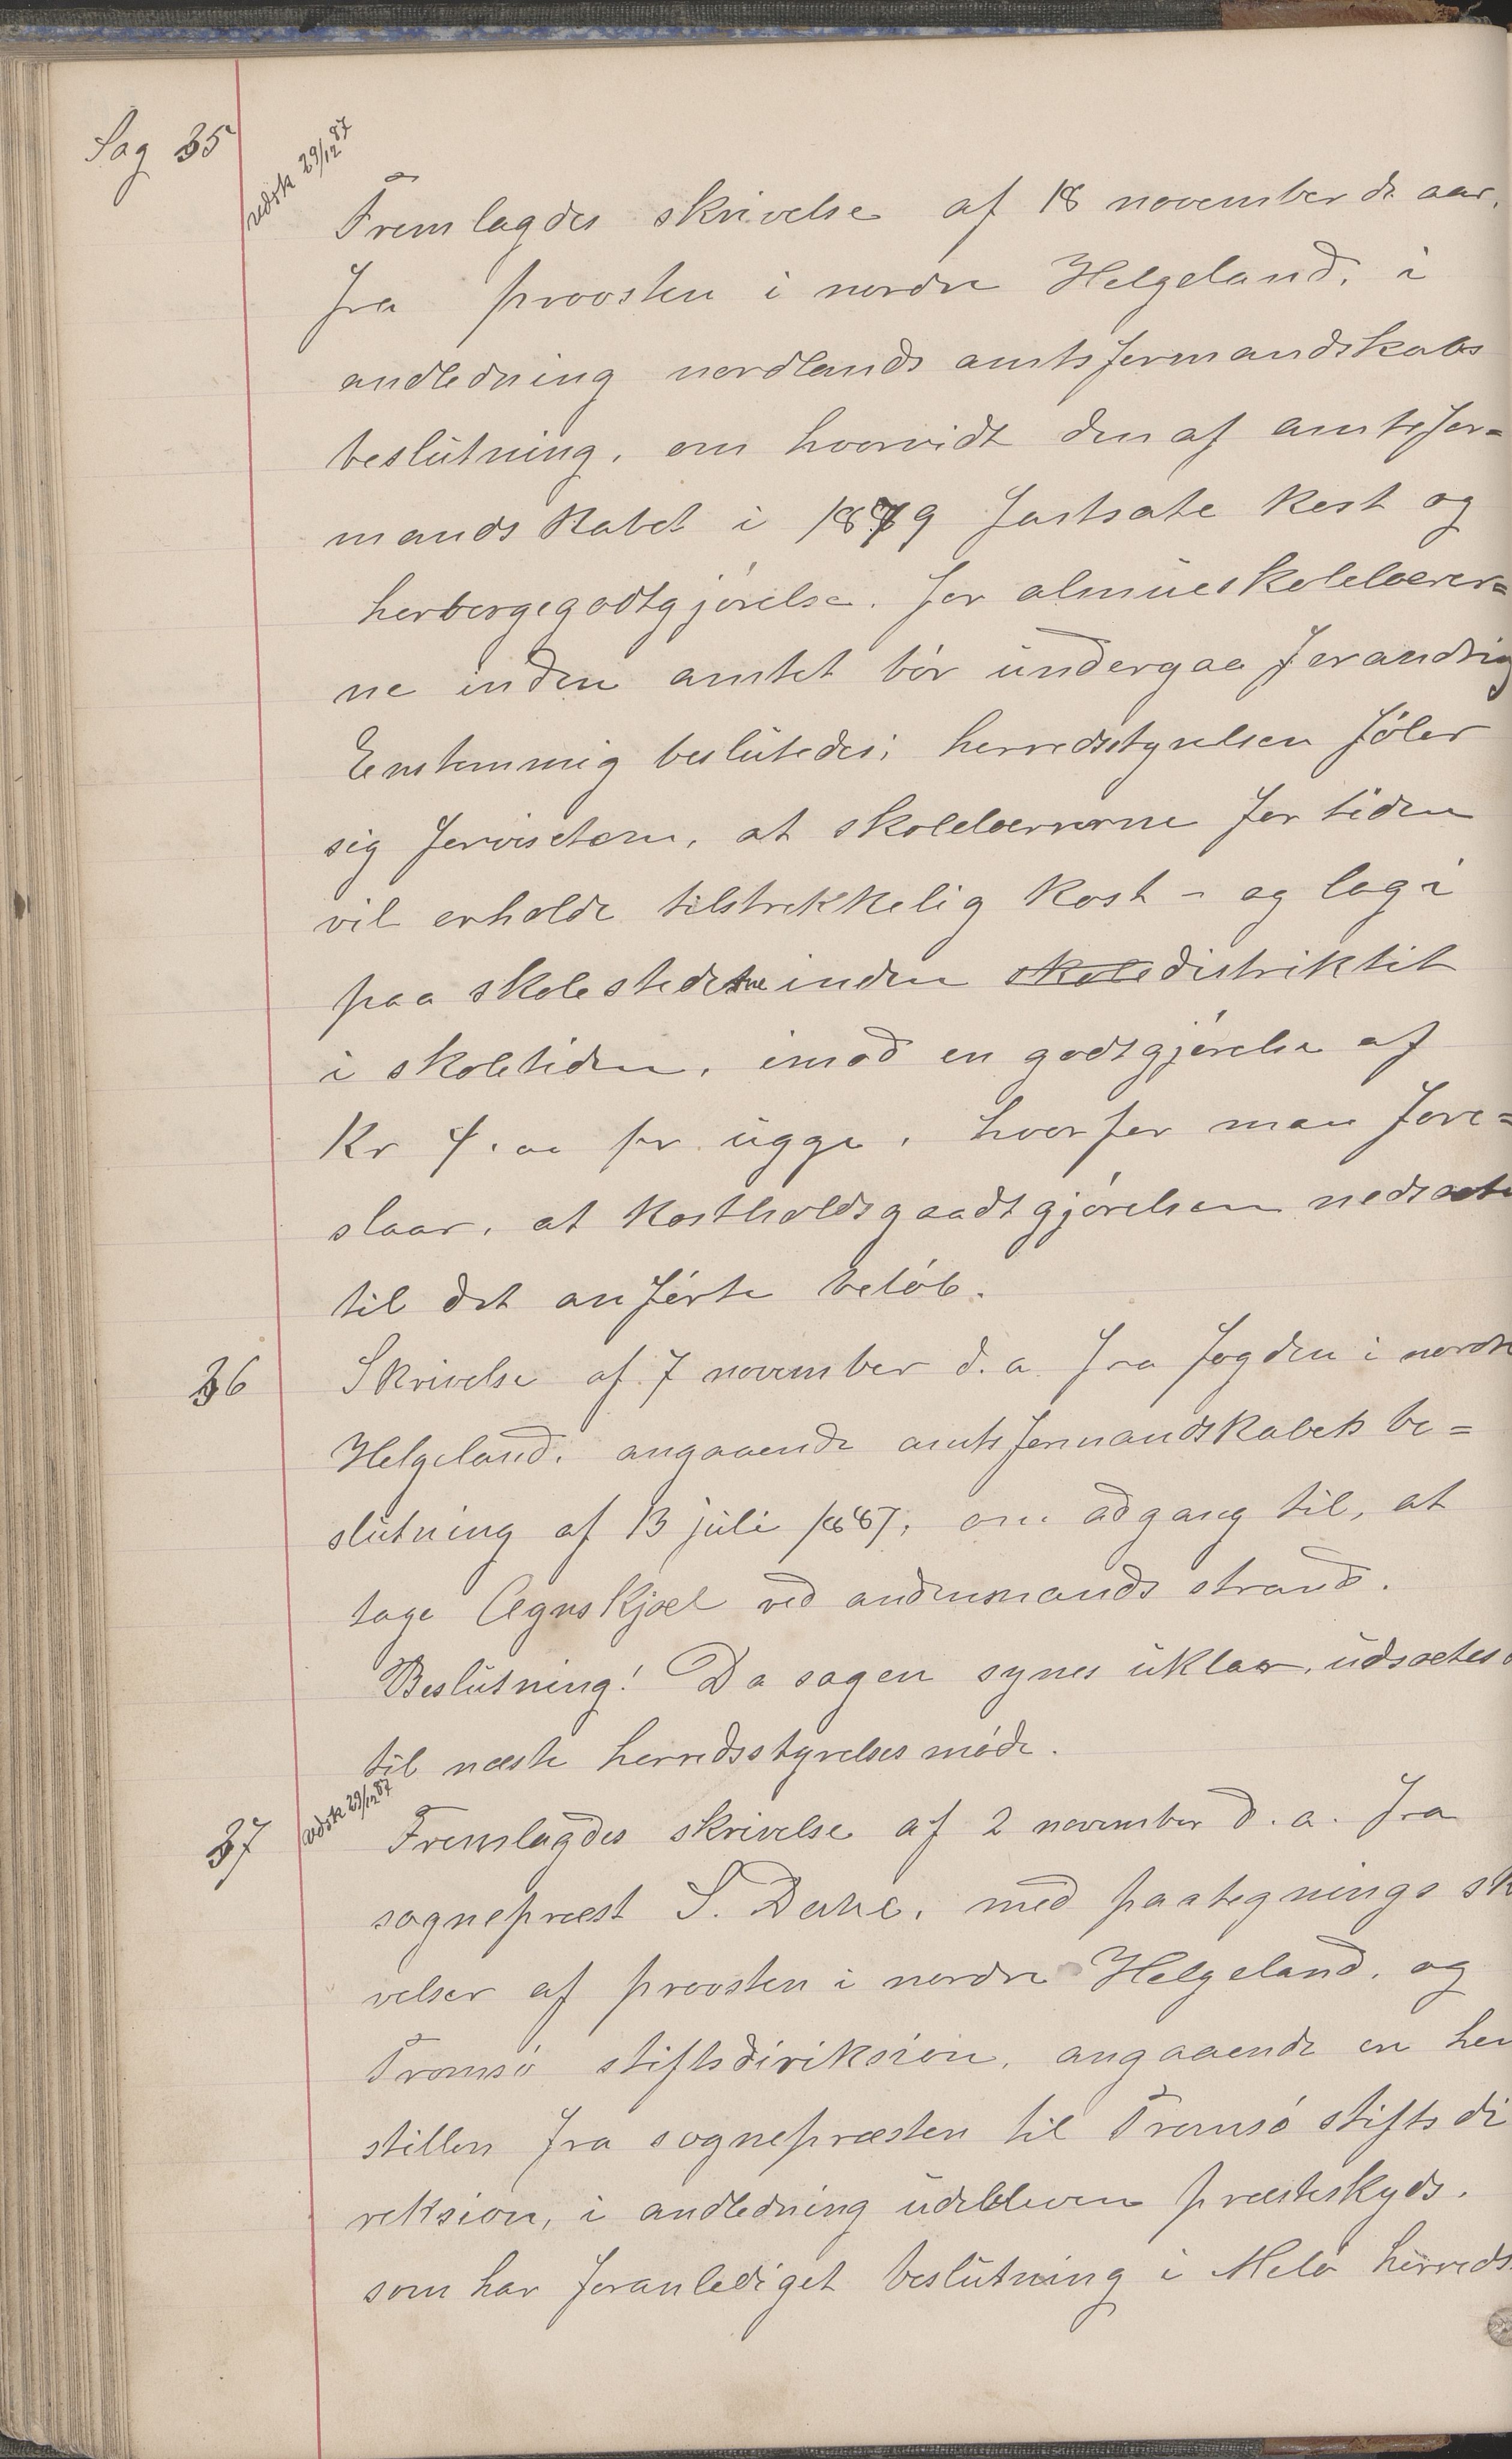 Sag 35
udsk 29/12 87
Fremlagdes skrivelse af 18 november ds aar,
fra proosten i nordre Helgeland, i
andledning nordlands amtsformandskabs
beslutning, om hvorvidt den af amtsfor=
mandskabet i 1879 fastsate kost og
herbergegodtgjörelse, for almueskolelærer=
ne inden amtet bör undergaa forandring
Enstemmig beslutedes; herredsstyrelsen föler
sig forvisetom, at skolelærerne for tiden
vil erholde tilstrekkelig kost - og logi
paa skolestederne inden skoledistriktit
i skoletiden, imod en godtgjörelse af
Kr 4.00 pr. ugge, hvorfor man fore=
slaar, at kostholdsgaadtgjörelsen nedsætes
til det anförte belöb.
36
Skrivelse af 7 november d.a. fra fogden i nordre
Helgeland, angaaende amtsformandskabets be=
slutning af 13 juli 1887, om adgang til, at
tage Agnskjæl ved andenmands strand.
Beslutning! Da sagen synes uklar, udsætes
til næste herredsstyrelsesmöde.
37
udsk 29/12 87
Fremlagdes skrivelse af 2 november d.a. fra
sogneprest S. Dahl, med paategnings sk
velser af proosten i nordre Helgeland, og
Tromsö stiftsdireksion, angaaende en hen
stillen fra sognepræsten til Tromsö stiftsdi
reksion, i andledning udebleven præsteskyds,
som har foranlediget beslutning i Melö herreds